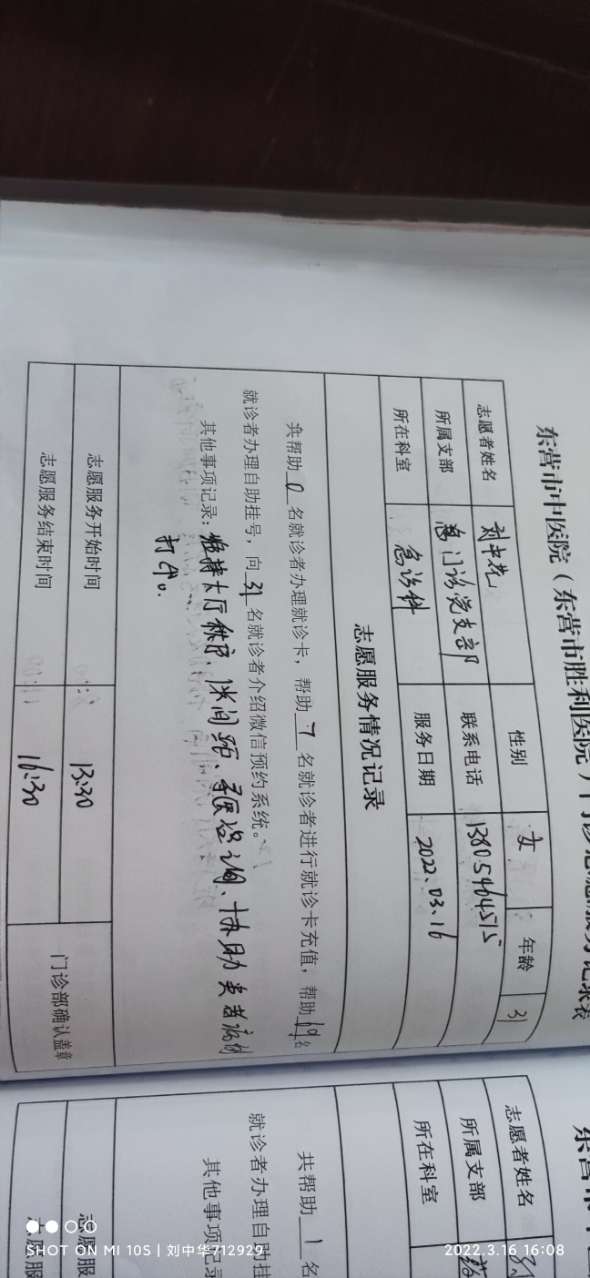 东营市中医院（东营市胜利医院）门诊志愿服务记录表
志愿者姓名 刘中花 性别 女 年龄 31
所属支部 急门诊党支部 联系电话 13805464515
所在科室 急诊科 服务日期 2022.03.16
志愿服务情况记录
共帮助 0 名就诊者办理就诊卡，帮助 7 名就诊者进行就诊卡充值，帮助 19 名
就诊者办理自助挂号，向 31 名就诊者介绍微信预约系统。
其他事项记录：维持大厅秩序、保持间距、咨询、协助患者病例
打印。
志愿服务开始时间 13:30
志愿服务结束时间 16:30
门诊部确认盖章
志愿者姓名
所属支部
所在科室
共帮助 1 名
就诊者办理自助挂
其他事项记录
志愿服
志愿服
SHOT ON MI 10S | 刘中华712929
2022.3.16 16:08